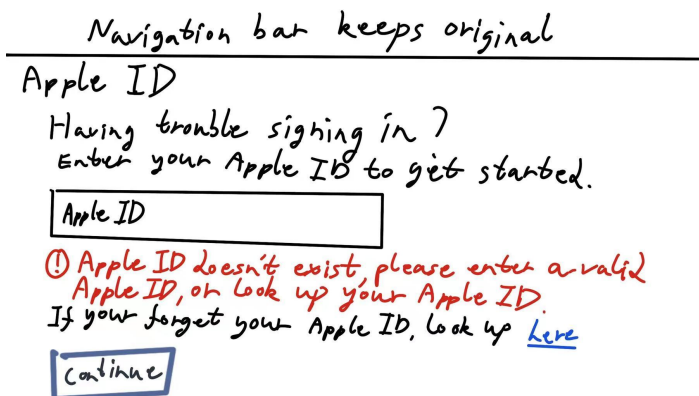 Navigation bar keeps original
Apple ID
Having trouble signing in?
Enter your Apple ID to get started.
Apple ID
! Apple ID doesn't exist, please enter a valid
Apple ID, or look up your Apple ID.
If your forget your Apple ID, look up here
Continue